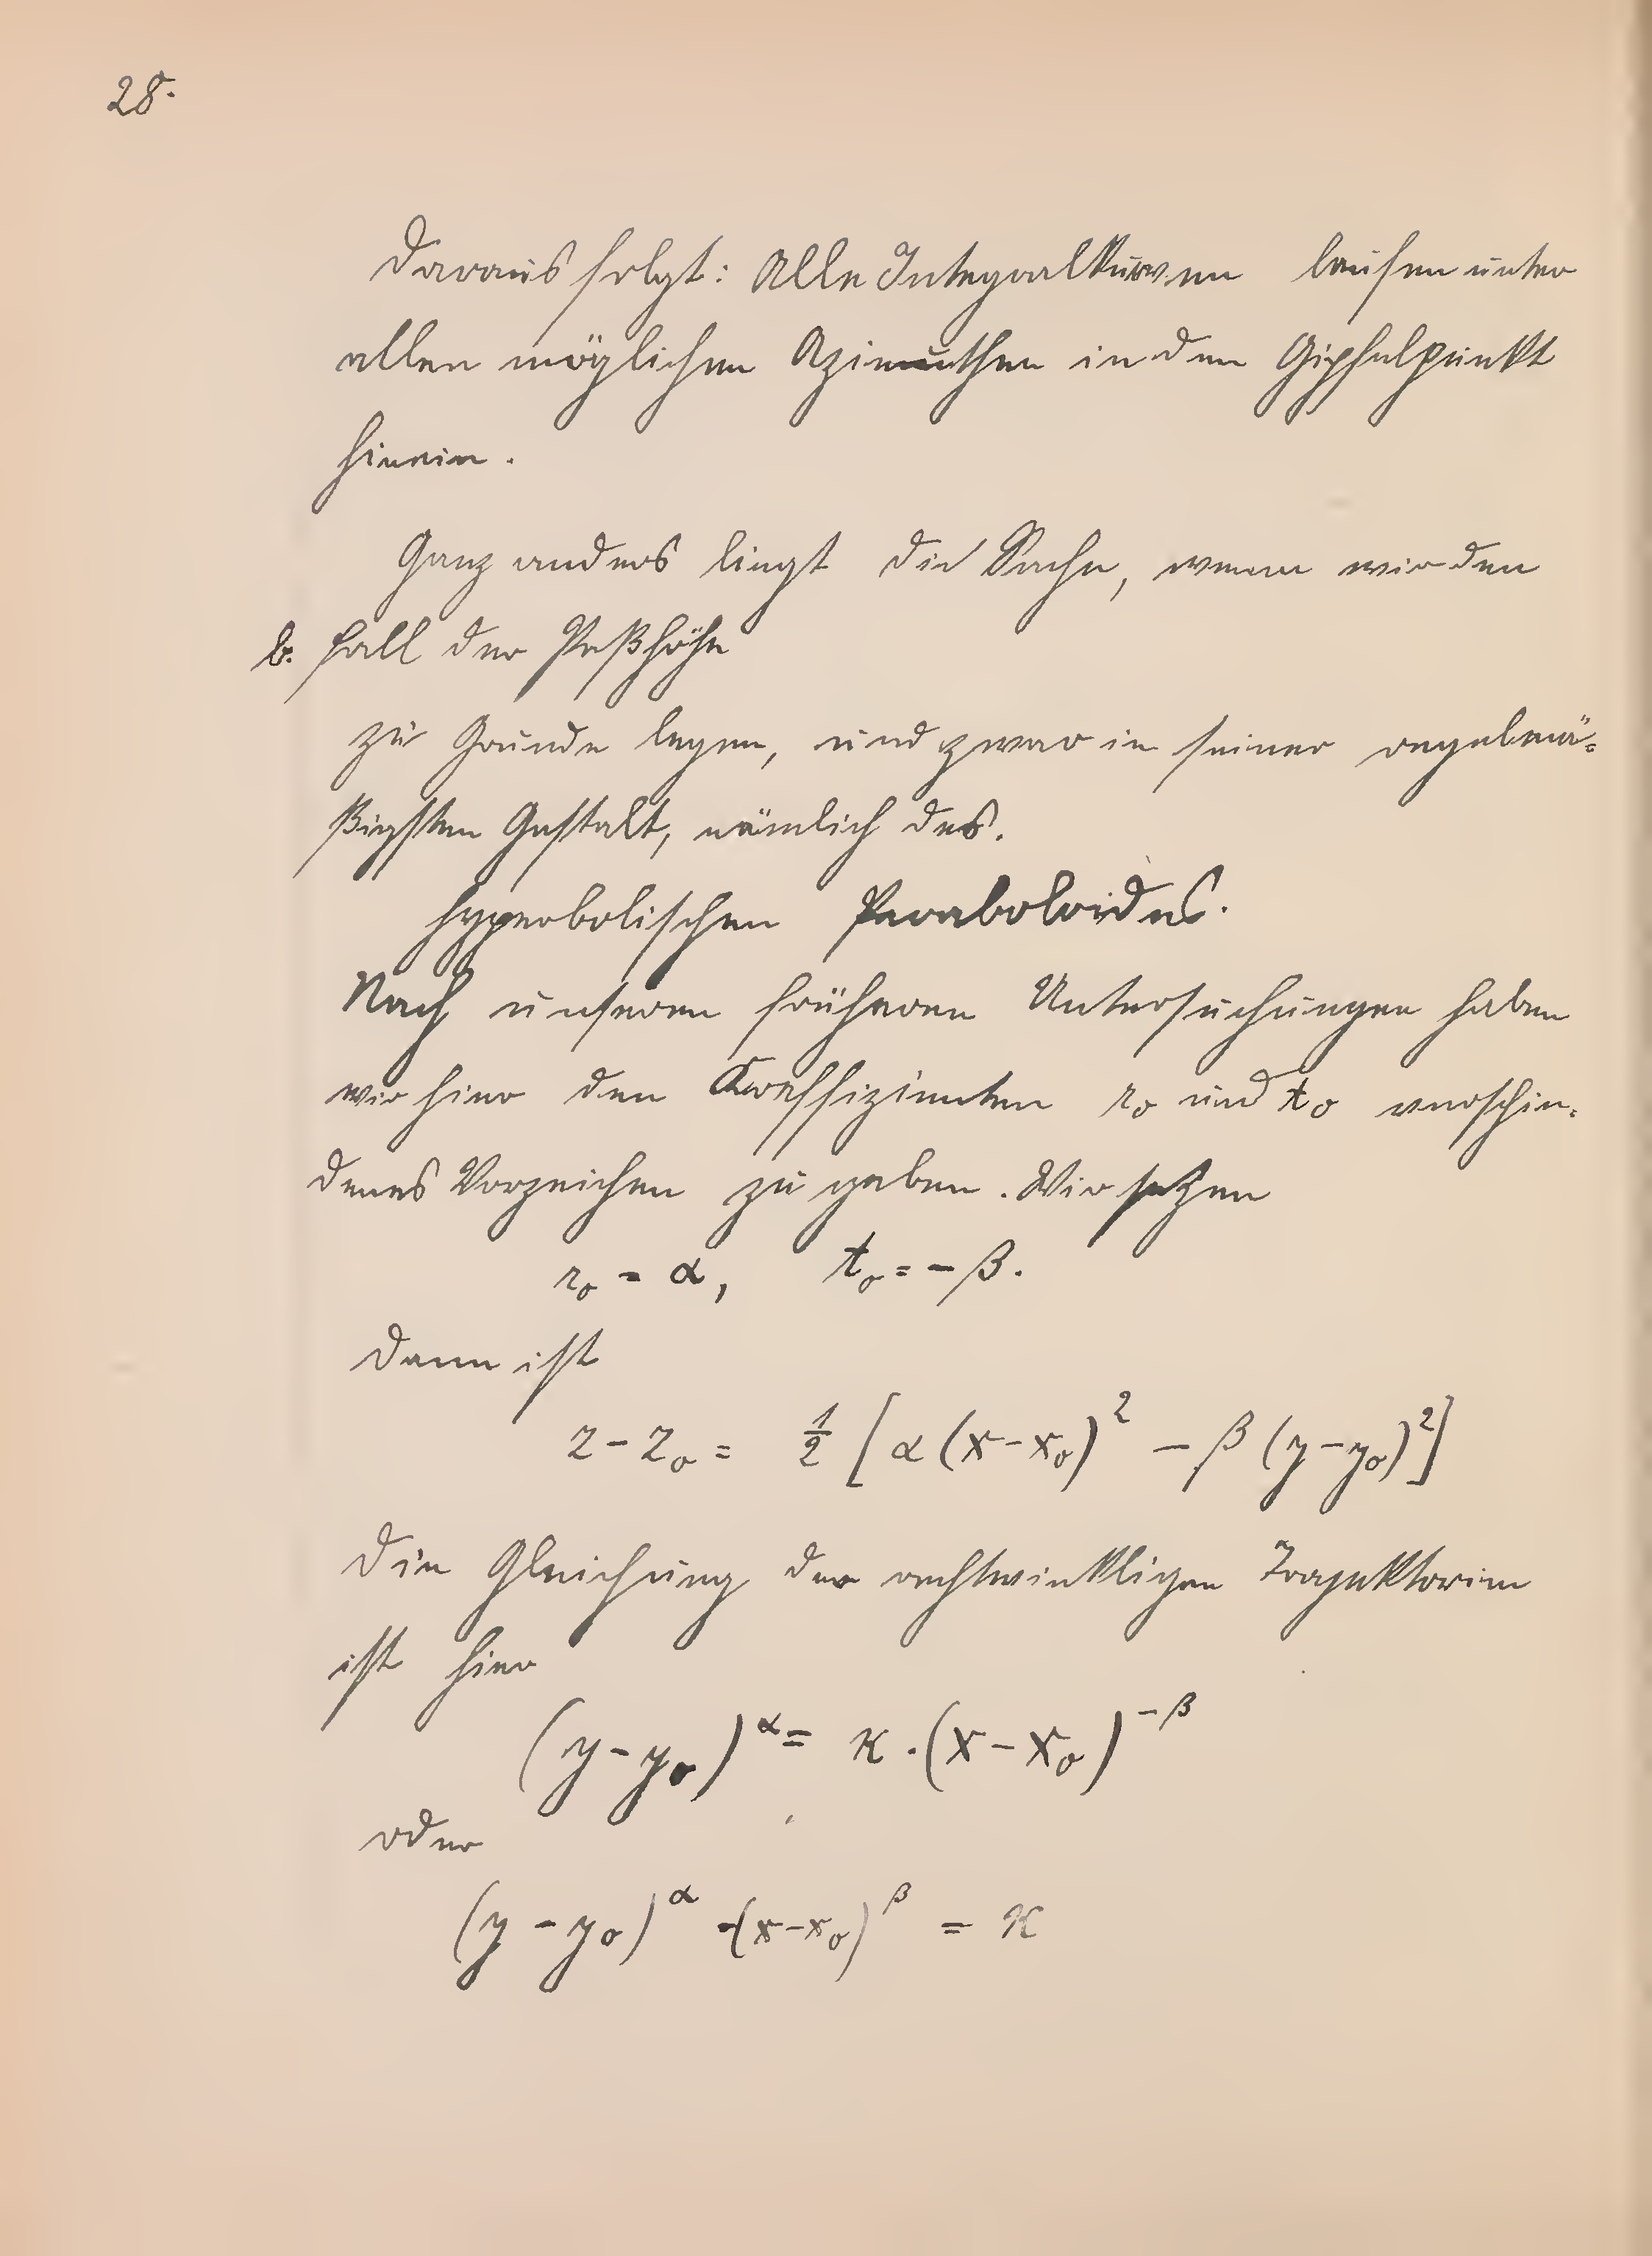 28.
Daraus folgt: Alle Integralkurven laufen unter
allen möglichen Azimuthen in den Gipfelpunkt
hinein.
Ganz anders liegt die Sache, wenn wir den
b. Fall der Paßhöhe
zu Grunde legen, und zwar in seiner regelmä-
ßigsten Gestalt, nämlich des.
hyperbolischen Paraboloides.
Nach unseren früheren Untersuchungen haben
wir hier den Koeffizienten r₀ und t₀ verschie-
denes Vorzeichen zu geben. Wir setzen
r₀ = α, t₀ = -β.
Dann ist
z - z₀ = 1/2 [α(x-x₀)² - β(y-y₀)²]
Die Gleichung der rechtwinkligen Trajektorien
ist hier
(y-y₀)^α = κ·(x-x₀)^-β
oder
(y-y₀)^α·(x-x₀)^β = κ